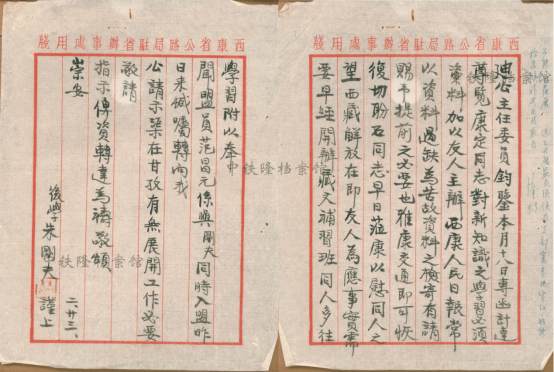 西康省公路局駐省辦事處用牋
迪公主任委員鈞鑒本月八日專函計達
尊覽康定同志對新知識之學習必須
資料加以友人主辦西康人民日報常
以資料過缺為苦故資料之檢寄有請
賜予提前之必要也雅康交通即可恢
復切盼石同志早日蒞康以慰同人之
望西藏解放在即友人為應事實需
要早經開辦藏文補習班同人多往
西康省公路局駐省辦事處用牋
學習附以奉
聞盟員范昌元係與剛夫同時入盟昨
日來緘囑轉向我
公請示渠在甘孜有無展開工作必要
敬請
指示傳資轉達為禱敬頌
崇安
後學朱剛夫謹上
二、廿三、
中秩隆档案館
秩隆档案館